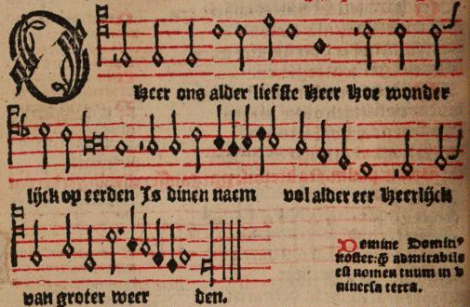 O Heer ons alder liefste Heer Hoe wonder
lijck op eerden Is dinen naem vol alder eer Heerlijck
van groter weer den.
Domine Dominꝰ
noster: ꝙ̄ admirabile
est nomen tuum in v
niuersa terra.